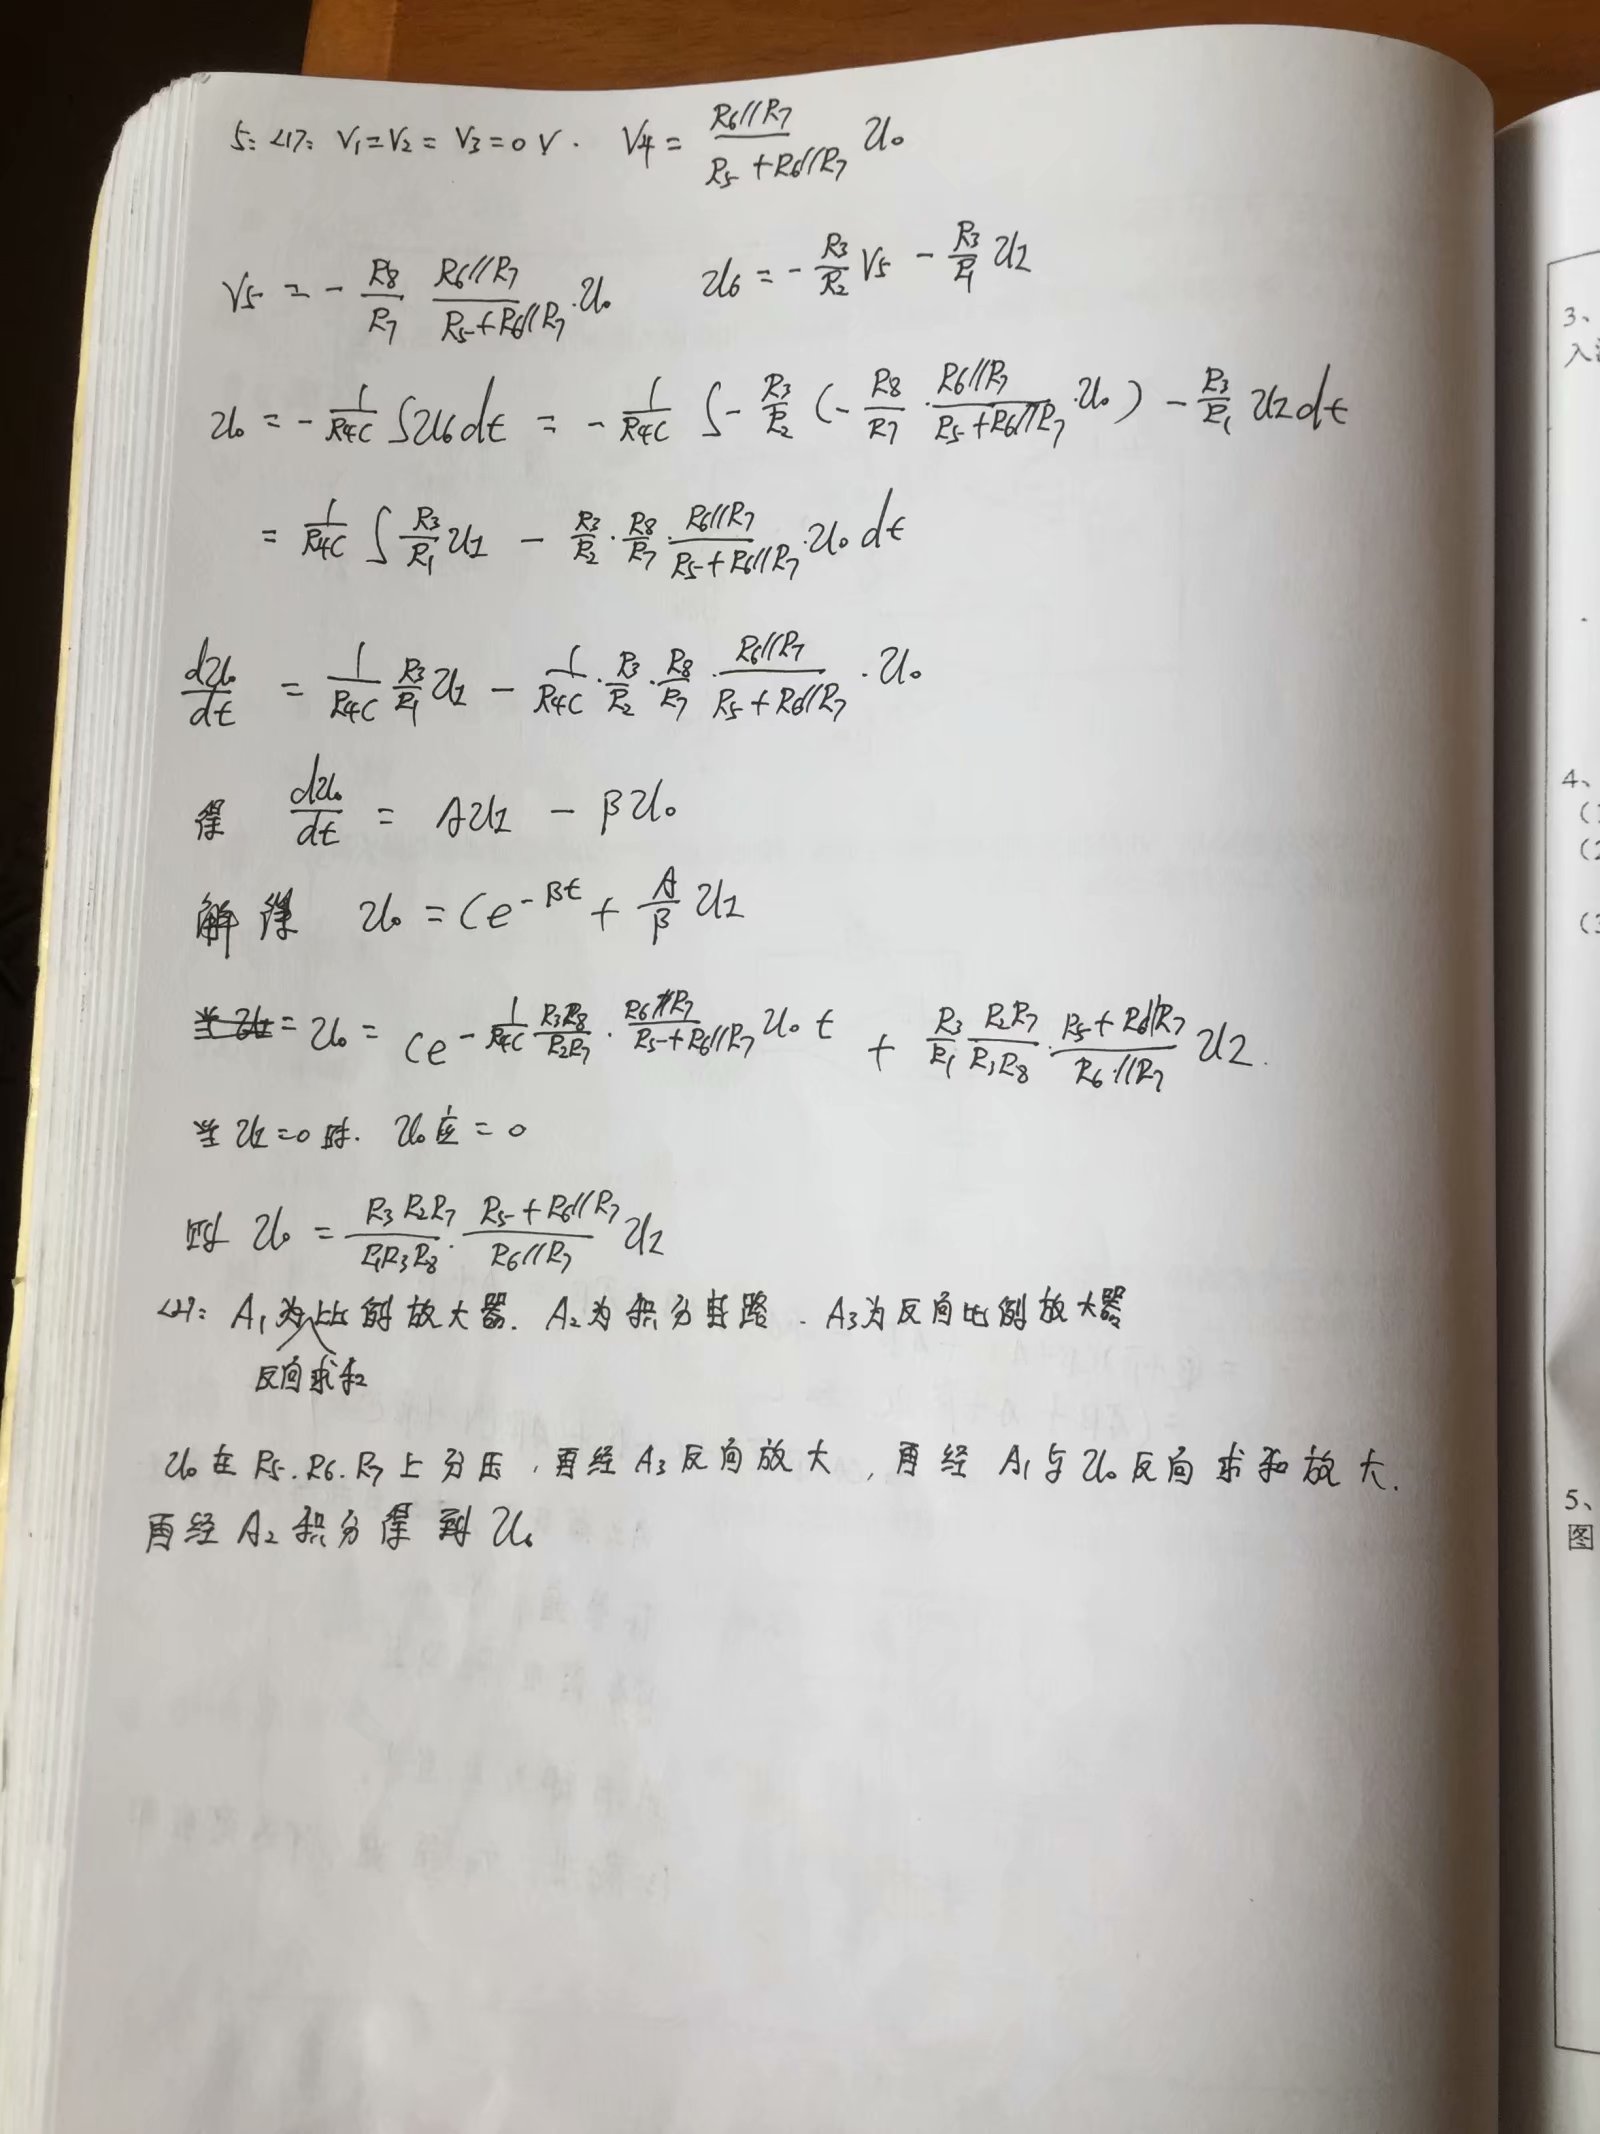 5: <1>: V₁=V₂=V₃=0V. V4 = R6//R7 / (R5+R6//R7) U₀
V5 = - R8/R7 · R6//R7 / (R5+R6//R7) · U₀ U6 = - R3/R2 V5 - R3/R1 UI
U₀ = - 1/R4C ∫U6dt = - 1/R4C ∫ - R3/R2 (- R8/R7 · R6//R7 / (R5+R6//R7) · U₀) - R3/R1 UI dt
= 1/R4C ∫ R3/R1 UI - R3/R2 · R8/R7 · R6//R7 / (R5+R6//R7) · U₀ dt
dU₀/dt = 1/R4C R3/R1 UI - 1/R4C · R3/R2 · R8/R7 · R6//R7 / (R5+R6//R7) · U₀
得 dU₀/dt = AUI - βU₀
解得 U₀ = Ce^(-βt) + A/β UI
U₀ = Ce^(- 1/R4C R3R8/R2R7 · R6//R7 / (R5+R6//R7) U₀ t) + R3/R1 R2R7/R3R8 · (R5+R6//R7) / R6//R7 UI.
当UI=0时. U₀应=0
则 U₀ = R3R2R7 / R1R3R8 · (R5+R6//R7) / R6//R7 UI
<2>: A₁为反向求和比例放大器. A₂为积分电路. A3为反向比例放大器
U₀在R5.R6.R7上分压,再经A3反向放大,再经A₁与U₀反向求和放大.
再经A₂积分得到U₀
3、
入
4、
(2
5、
图